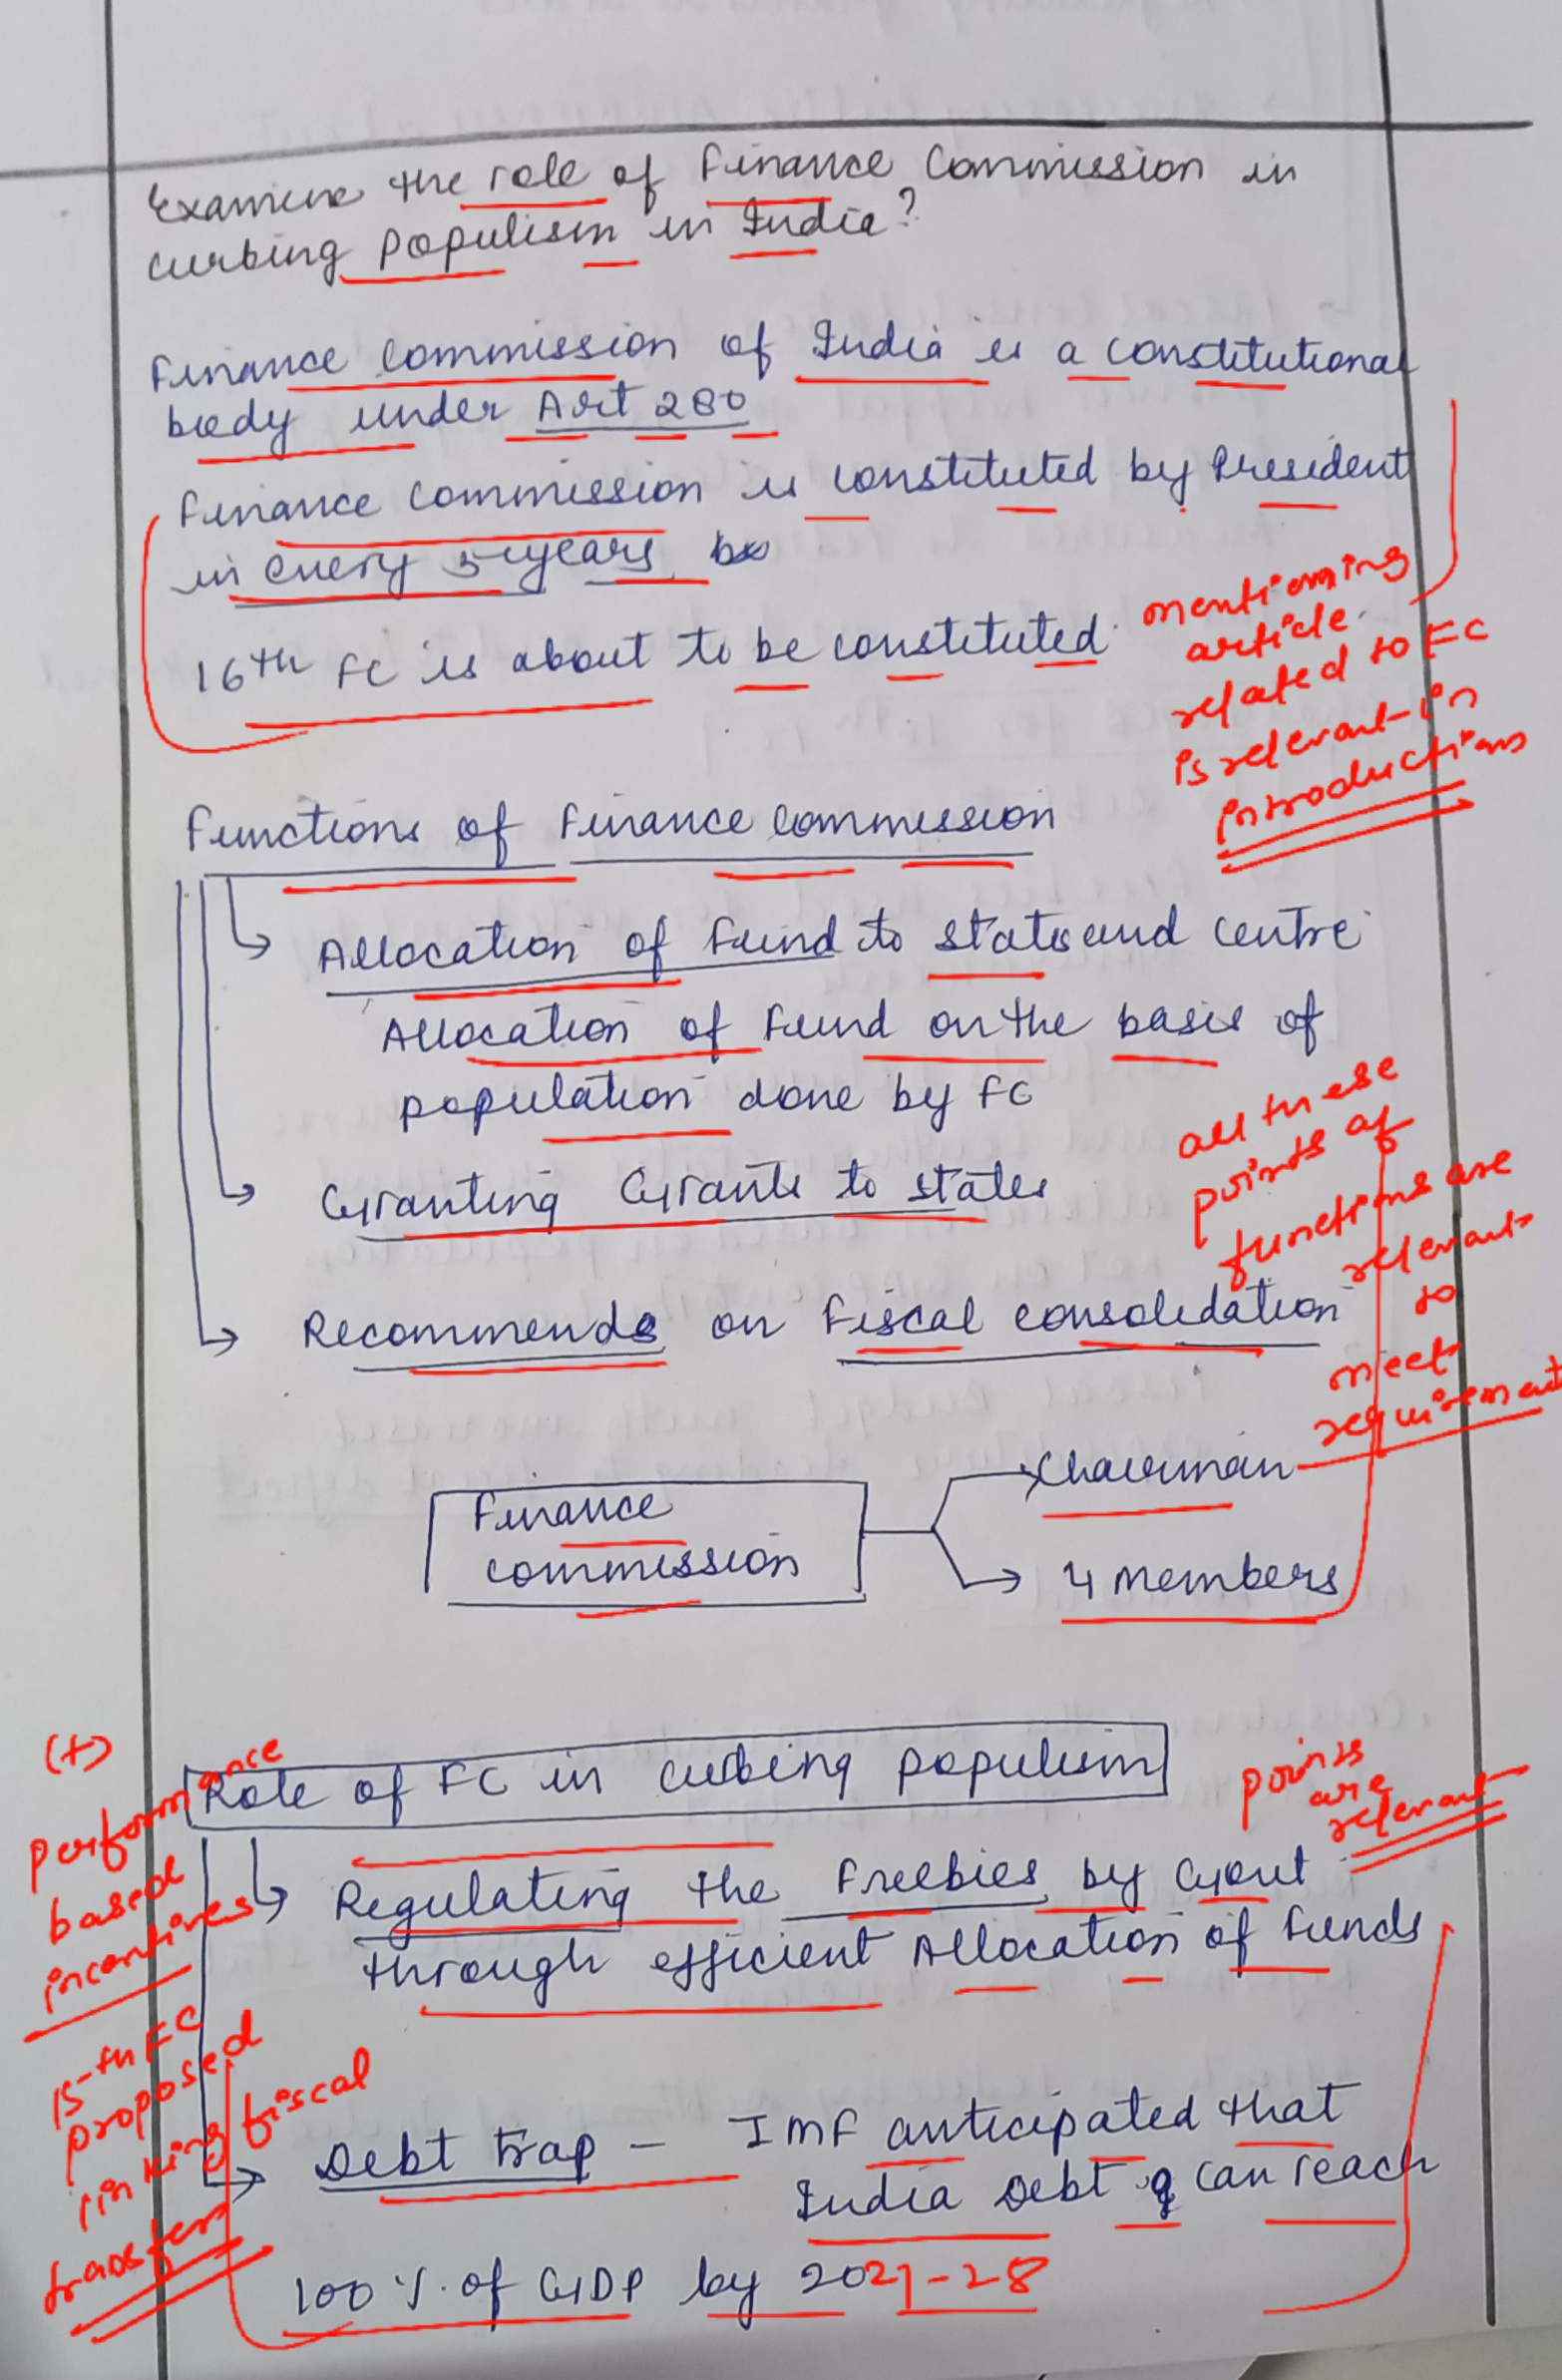 Examine the role of Finance Commission in
curbing populism in India?
Finance Commission of India is a constitutional
body under Art 280
Finance Commission is constituted by President
in every 5 years
16th FC is about to be constituted
mentioning
article
related to FC
is relevant in
introductions
Functions of Finance Commission
Allocation of Fund to state and centre
Allocation of Fund on the basis of
population done by FC
Granting Grants to states
Recommends on Fiscal consolidation
all these
points of
functions are
relevant
to
meet
requirement
Finance
commission
Chairman
4 members
Role of FC in curbing populism
points
are
relevant
Regulating the Freebies by Govt
through efficient Allocation of Funds
Debt trap – IMF anticipated that
India Debt can reach
100% of GDP by 2027-28
(+)
performance
based
incentives
15th FC
proposed
linking fiscal
transfers